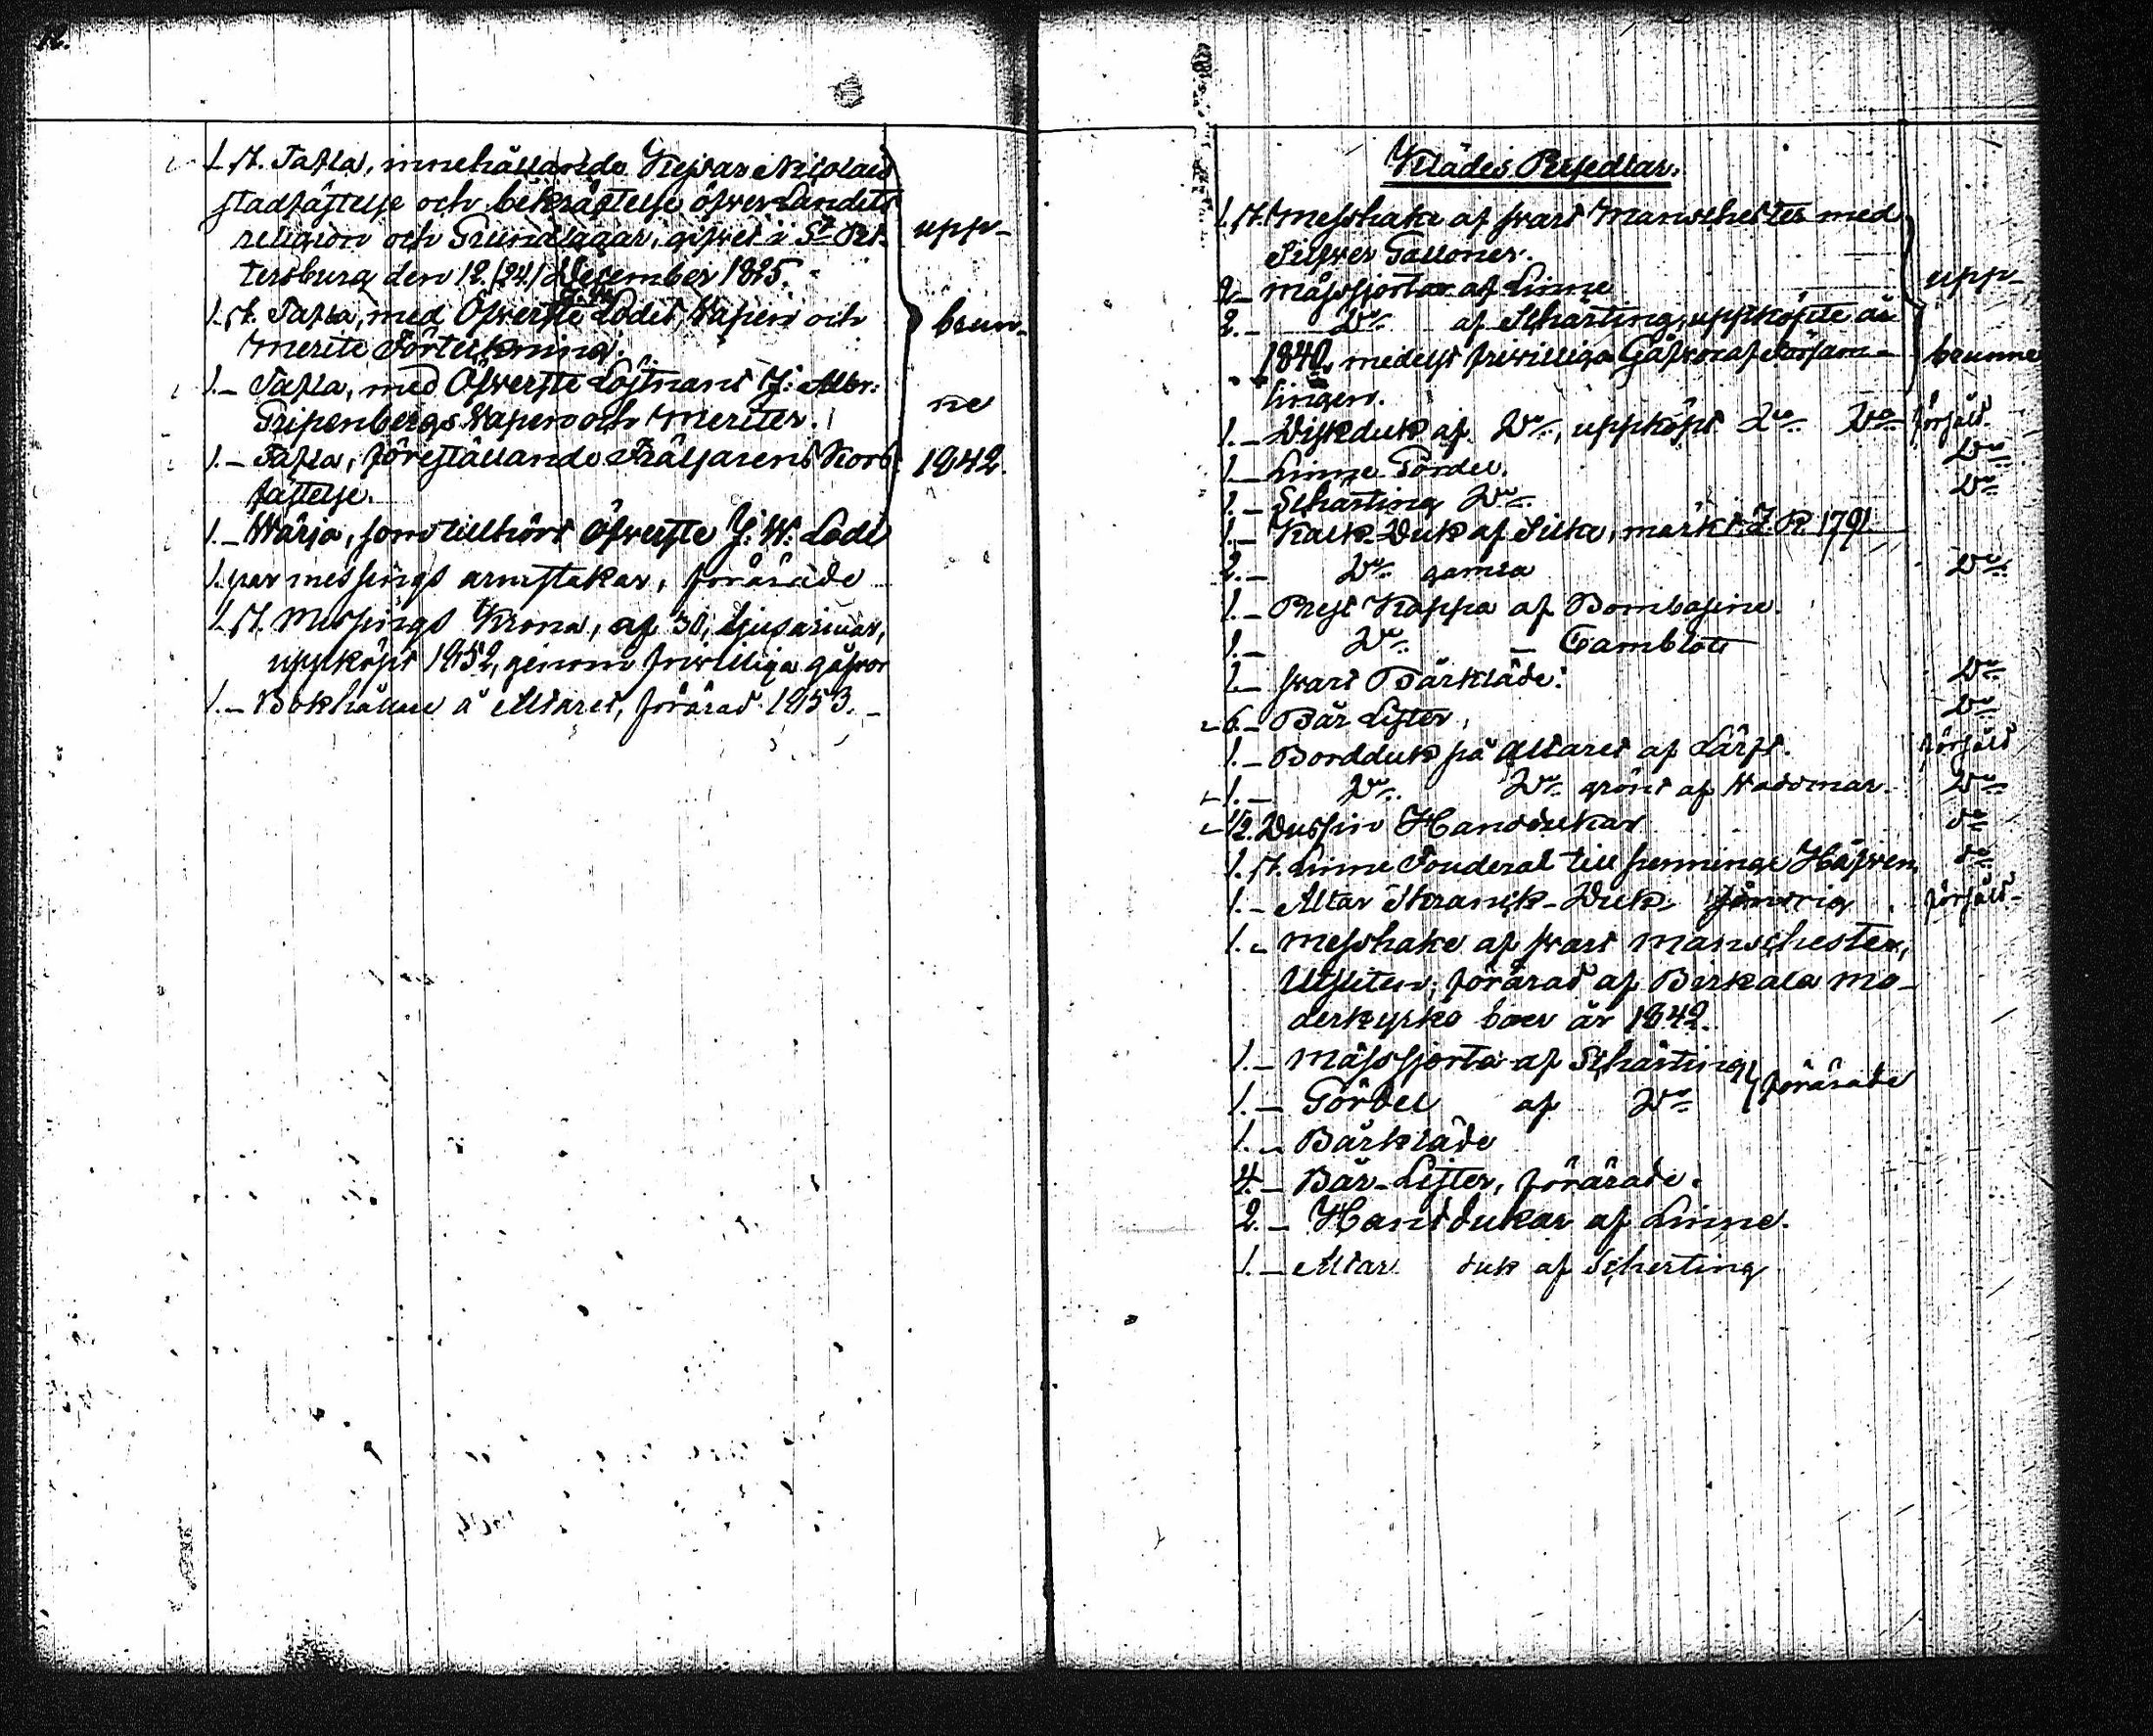 12.
1. st. Tafla, innehållande Kejsar Nicolais
stadfästelse och bekräftelse öfver Landets
religion och Grundlagar, gifvet i St. Pet-
tersburg den 12./24./ December 1825.
1. st. Tafla, med Öfverste Lodes, Wapen och
Merite Förteckning.
1. _ Tafla, med Öfverste Löjtnant J: Albr:
Gripenbergs Wapen och Meriter.
1. _ Tafla, föreställande Frälsarens Kors-
fästelse.
upp-
brun-
ne
1842.
1. _ Wärja, som tillhört Öfverste J: W: Lode
1. par messings armstakar, förärade
1. st. Messings Krona, af 30, ljusarmar,
uppköpt 1852, genom friviliga gåfvor
1. _ Bokhållare å Altaret, förärad 1853. _
Klädes Persedlar.
1. st. Messhake af svart Manschester med
Silfver Galloner.
2 _ mässkjortor af Linne
2. _ Do af Schärting, uppköpte år
1840, medelst frivilliga Gåfvor af Försam-
lingen.
upp-
brunne
1. _ Diskduk af Do, uppköpt Do Do försåld
1. _ Linne Gördel. Do
1. _ Schärting Do Do
1. _ Kalk-Duk af Silke, märkt 1791
2. _ Do gamla Do
1. _ Prest Kappa af Bombasine.
1. _ Do _ Camblott
1. _ svart Bårkläde. Do
6. _ Bår Lister, Do
1. _ Bordduk på Altaret af Lärft. försåld
1. _ Do Do grönt af Wadmar. Do
1/2. Dussin Handdukar do
1. st. Linne Fouderal till penninge Håfven do
1. _ Altar Skrank-Duk, försåld-
1. _ messhake af svart manschester,
Utsliten, förärad af Birkala mo-
derkyrko boer år 1842.
1. _ mässkjorta af Schärting } förärade
1. _ Gördel af Do
1. _ Bårkläde
4. _ Bår-Lister, förärade.
2. _ Handdukar af Linne.
1. _ Altar duk af Scherting